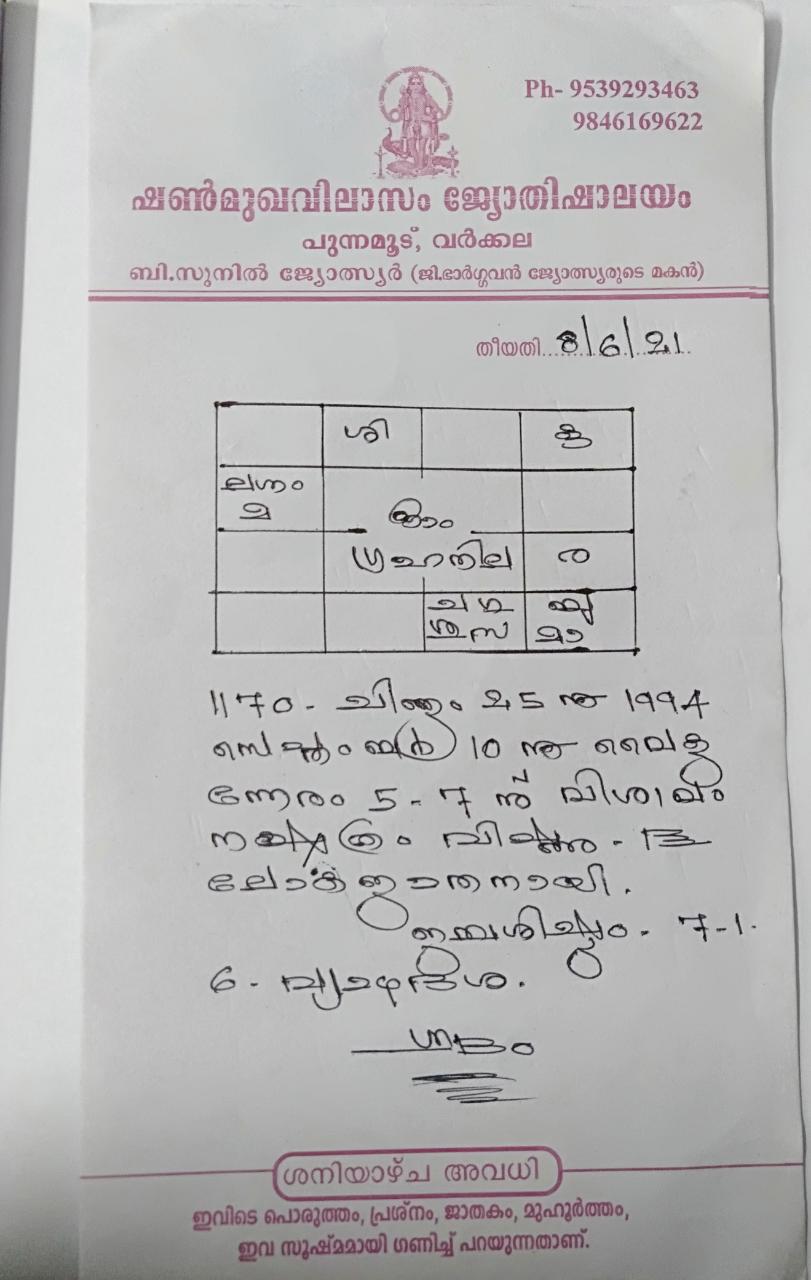 Ph- 9539293463
9846169622
ഷൺമുഖവിലാസം ജ്യോതിഷാലയം
പുന്നമൂട്, വർക്കല
ബി.സുനിൽ ജ്യോത്സ്യർ (ജി.ഭാർഗ്ഗവൻ ജ്യോത്സ്യരുടെ മകൻ)
തീയതി 8/6/21
ശി
ലഗ്നം
മ
ഗ്രഹനില
ര
1170 - ചിങ്ങം 25 ന് 1994
സെപ്റ്റംബർ 10 ന് വൈകു
ന്നേരം 5-7 ന് വിശാഖം
നക്ഷത്രം
ജാതനായി.
7-1.
6 - വ്യാഴദശ.
ശുഭം
ശനിയാഴ്ച അവധി
ഇവിടെ പൊരുത്തം, പ്രശ്നം, ജാതകം, മുഹൂർത്തം,
ഇവ സൂഷ്മമായി ഗണിച്ച് പറയുന്നതാണ്.